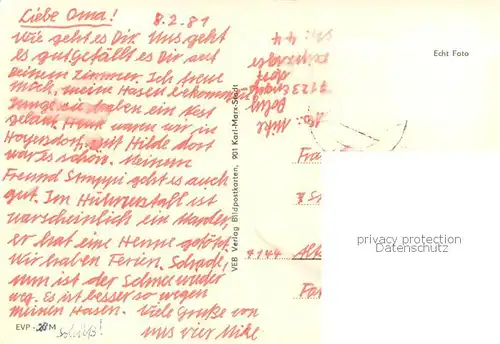 Liebe Oma! 8.2.81
Wie geht es Dir. Uns geht
es gut gefällt es Dir auf
Deinem Zimmer. Ich freue
mich, meine Hasen bekommen
Junge sie haben ein Nest
gebaut. Heute waren wir in
Hoyersdorf, mit Hilde dort
war es schön. Meinem
Freund Struppi geht es auch
gut. Im Hühnerstall ist
warscheinlich ein Marder
er hat eine Henne getötet.
Wir haben Ferien. Schade,
nun ist der Schnee wieder
weg. Es ist besser so wegen
meinen Hasen. Viele Grüße von
uns vier Mike
EVP -,20 M
VEB Verlag Bildpostkarten, 901 Karl-Marx-Stadt
Echt Foto
Abs: Mike
7123
Fra
7144 Alt
privacy protection
Datenschutz